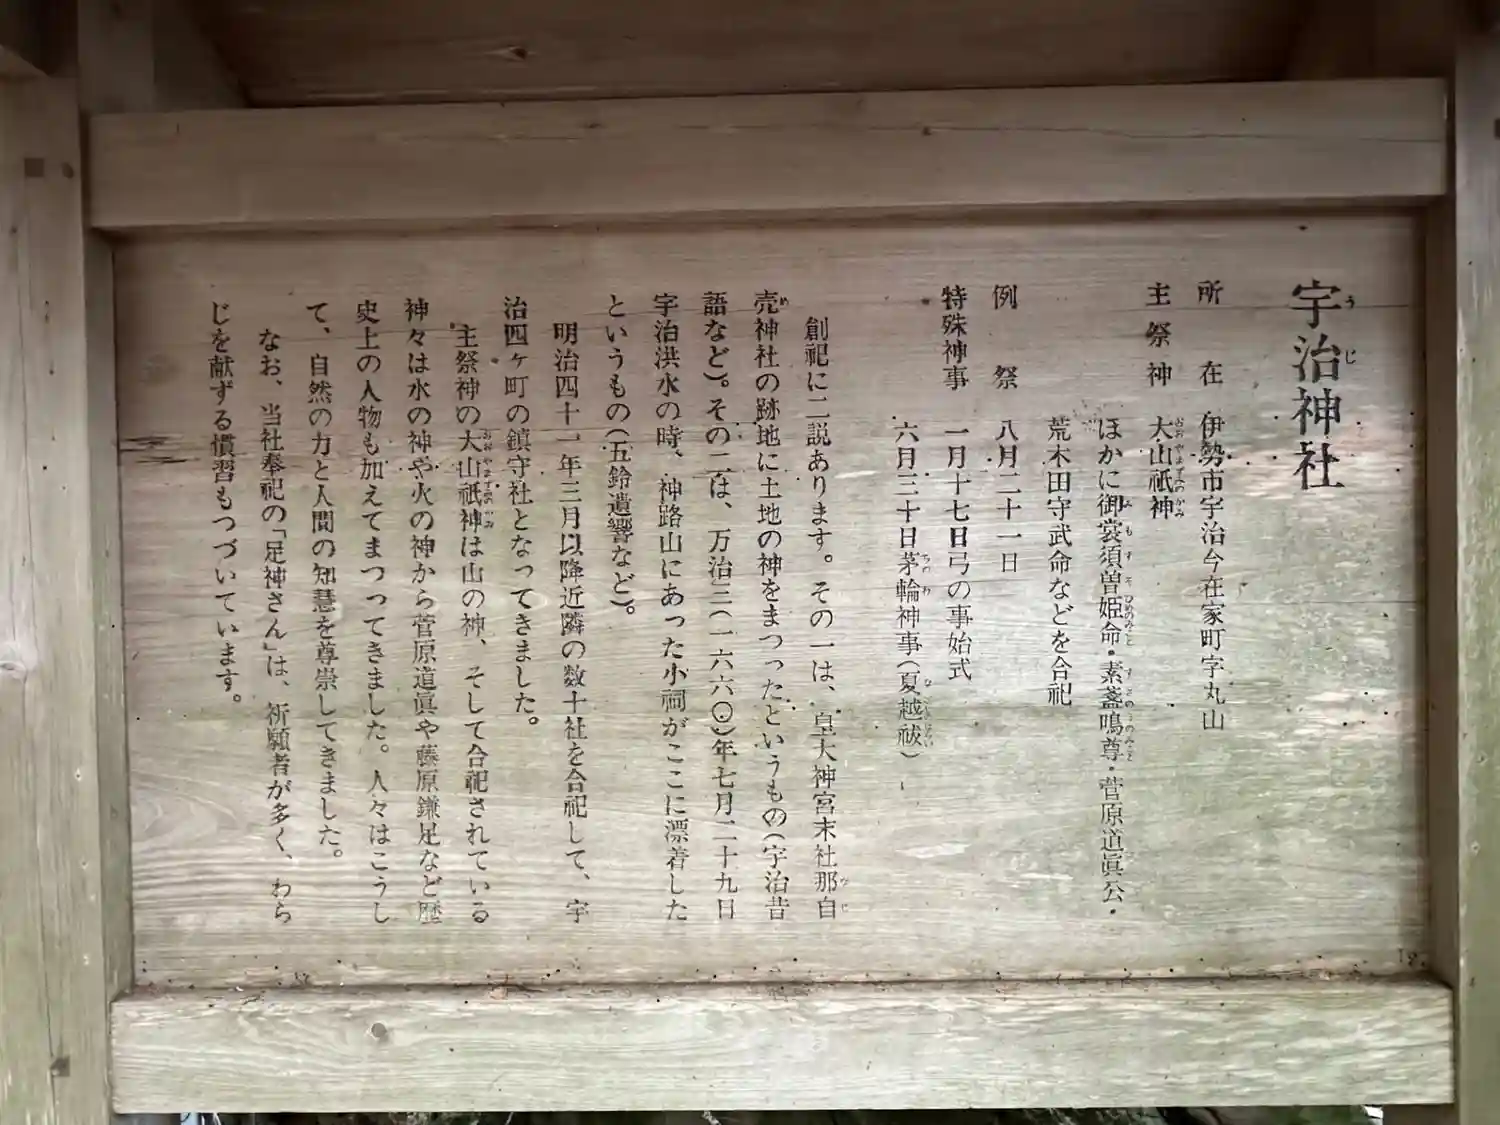 宇治神社
所在 伊勢市宇治今在家町字丸山
主祭神 大山祇神
ほかに御裳須曽姫命・素盞鳴尊・菅原道眞公・
荒木田守武命などを合祀
例祭 八月二十一日
特殊神事 一月十七日弓の事始式
六月三十日茅輪神事(夏越祓)
創祀に二説あります。その一は、皇大神宮末社那自
売神社の跡地に土地の神をまつったというもの(宇治昔
語など)。その二は、万治三(一六六〇)年七月二十九日
宇治洪水の時、神路山にあった小祠がここに漂着した
というもの(五鈴遺響など)。
明治四十一年三月以降近隣の数十社を合祀して、宇
治四ヶ町の鎮守社となってきました。
主祭神の大山祇神は山の神、そして合祀されている
神々は水の神や火の神から菅原道眞や藤原鎌足など歴
史上の人物も加えてまつってきました。人々はこうし
て、自然の力と人間の知慧を尊崇してきました。
なお、当社奉祀の「足神さん」は、祈願者が多く、わら
じを献ずる慣習もつづいています。